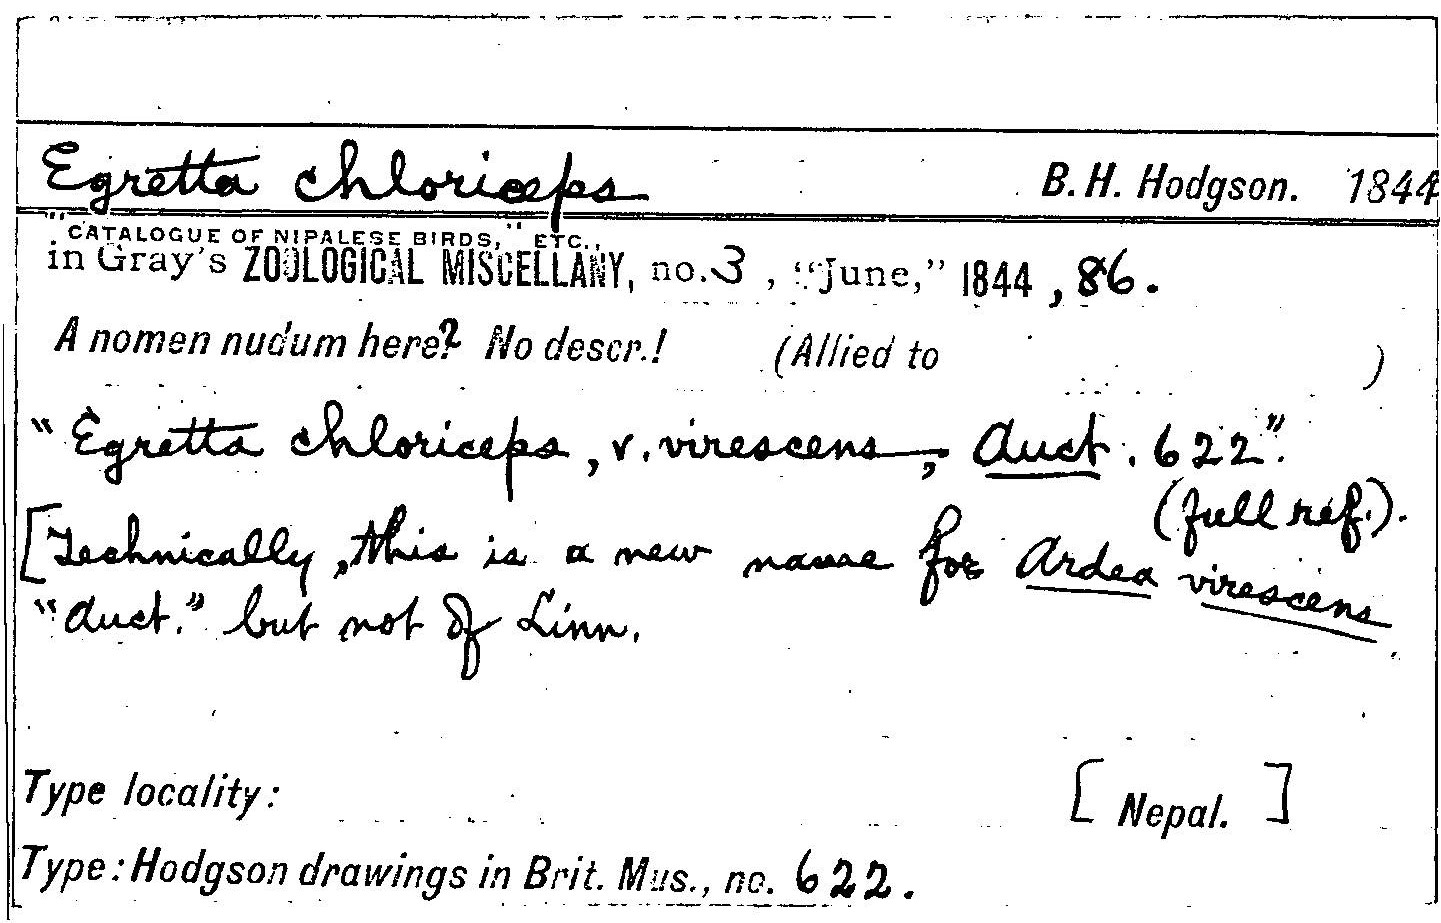 Egretta chloriceps B. H. Hodgson. 1844
"CATALOGUE OF NIPALESE BIRDS," ETC.,
in Gray's ZOOLOGICAL MISCELLANY, no. 3, "June," 1844, 86.
A nomen nudum here? No descr.! (Allied to )
"Egretta chloriceps, v. virescens, Auct. 622".
(full ref.).
[Technically, this is a new name for Ardea virescens
"Auct." but not of Linn.
Type locality: [Nepal.]
Type: Hodgson drawings in Brit. Mus., no. 622.